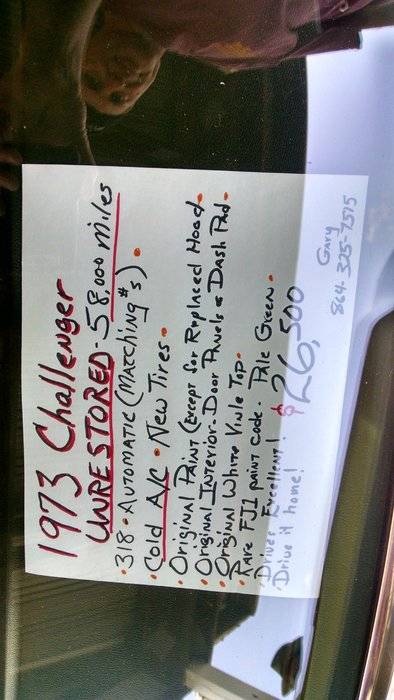 1973 Challenger
UNRESTORED - 58,000 miles
• 318 • AUTOMATIC (MATCHING #s) •
• Cold A/C • New Tires •
• ORIGINAL PAINT (Except for Replaced Hood •
• ORIGINAL INTERIOR - DOOR PANELS & DASH PAD •
• ORIGINAL WHITE VINLE TOP •
• RARE FJ1 paint code. Pale Green •
• Drives Excellent! $26,500
• Drive it home! GARY
864-325-7515